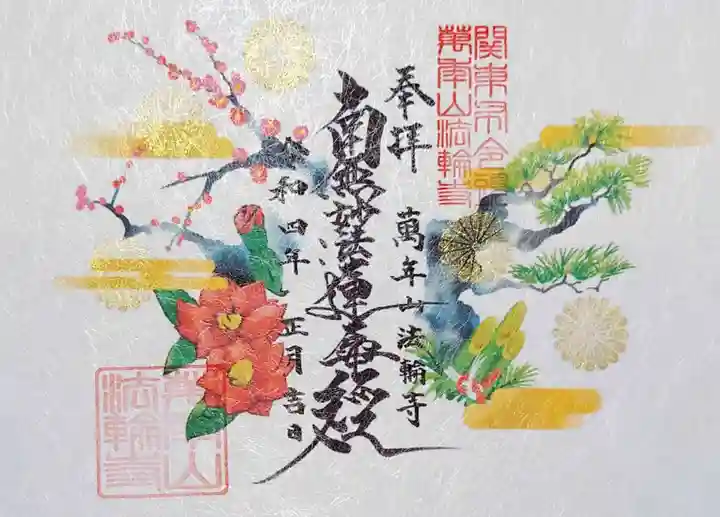 関東不令頭
萬年山法輪寺
奉拝
萬年山法輪寺
南無妙法蓮華経
令和四年 正月吉日
萬年山
法輪寺